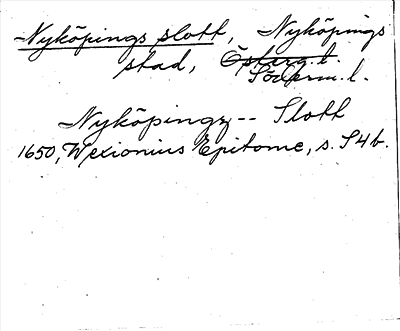 Nyköpings slott, Nyköpings
stad, Österg. l.
Söderm. l.
Nyköpingz -- Slott
1650, Wexionius Epitome, s. S4b.